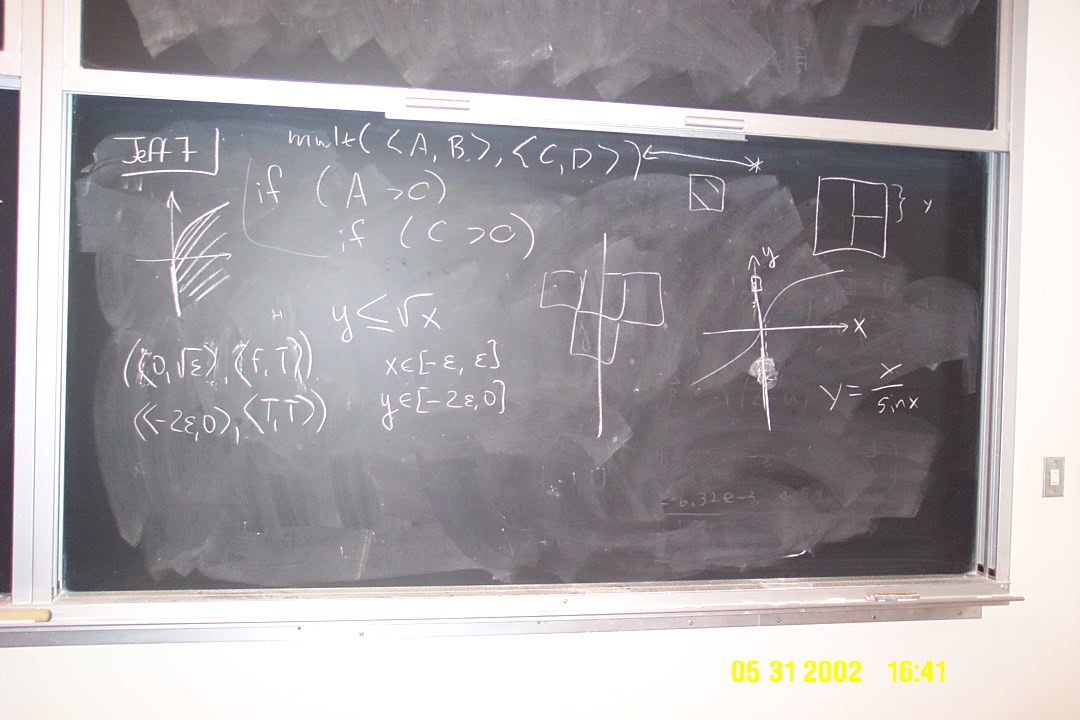 Jeff 7
mult(<A,B>,<C,D>)
if (A >0)
if (C >0)
y ≤ √x
(<0,√ε>,<F,T>)
x∈[-ε, ε]
(<-2ε,0>,<T,T>)
y∈[-2ε,0]
y
y
x
y = x / sinx
-6.32e-3
05 31 2002 16:41